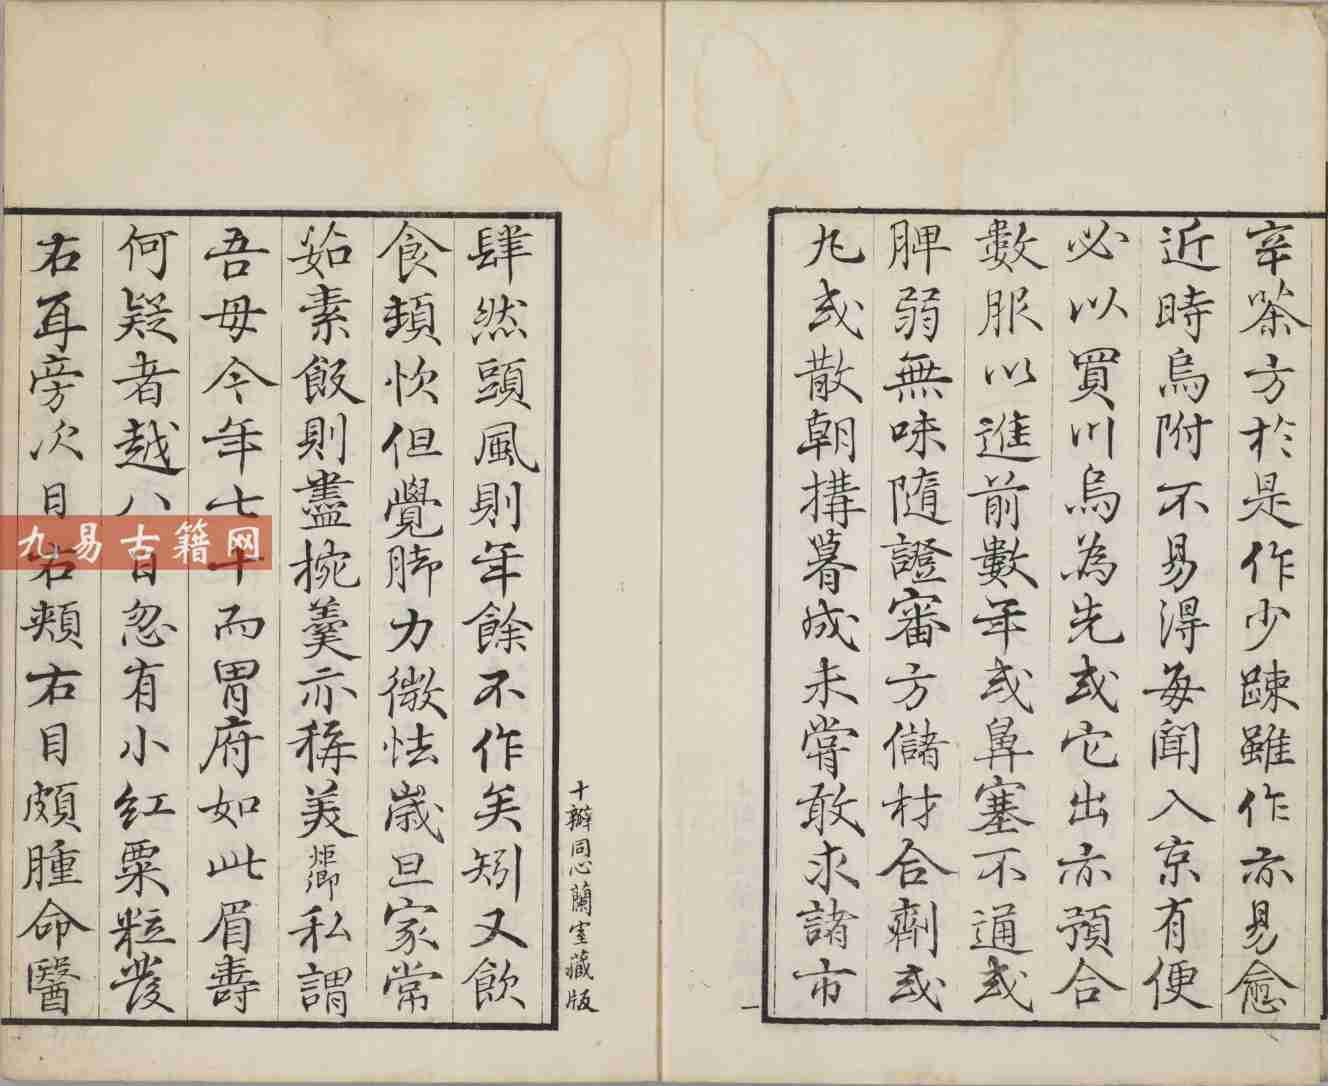 辛茶方於是作少踈雖作亦易愈
近時烏附不易得每聞入京有便
必以買川烏為先或它出亦預合
數服以進前數年或鼻塞不通或
脾弱無味隨證審方儲材合劑或
丸或散朝搆暮成未嘗敢求諸市
一
十瓣同心蘭室藏版
肆然頭風則年餘不作矣矧又飲
食頓快但覺脚力微怯歲旦家常
茹素飯則盡椀羹亦稱美炬卿私謂
吾母今年七十而胃府如此眉壽
何疑者越八日忽有小紅粟粒發
右耳旁次日右頰右目頗腫命醫
九易古籍网